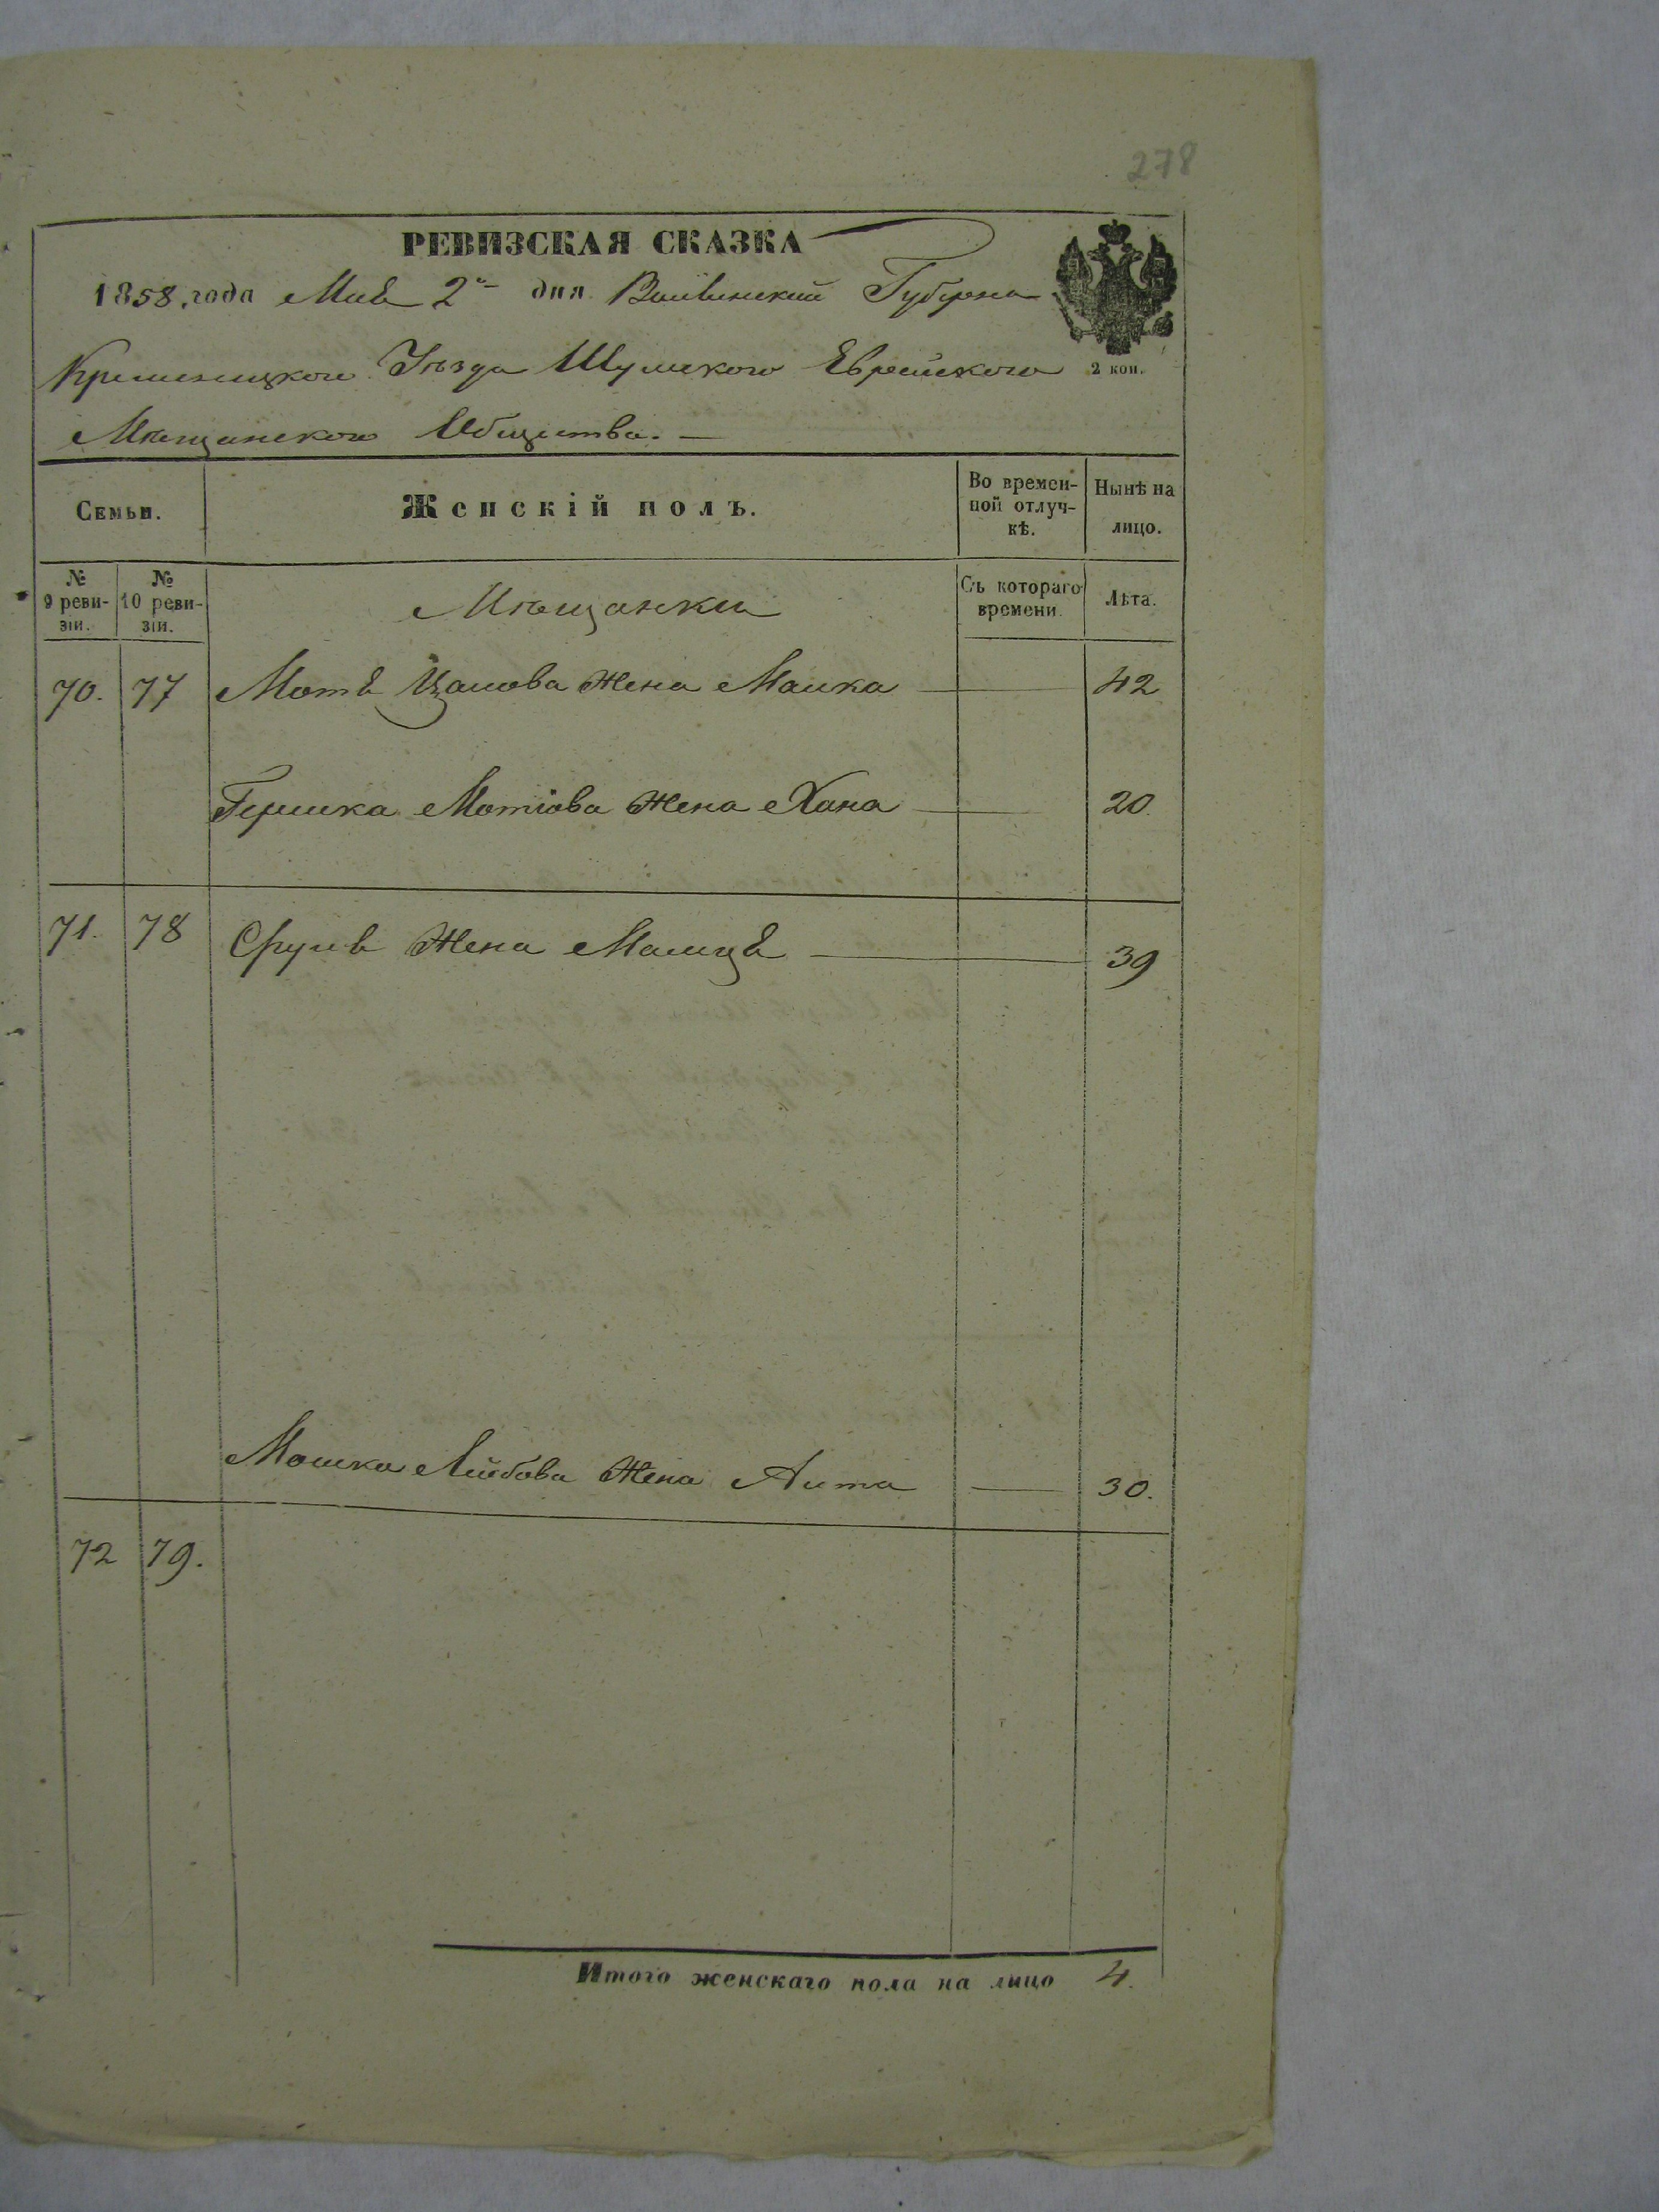 278
РЕВИЗСКАЯ СКАЗКА
1858. года Мая 2го дня Волынской Губерніи
2 коп.
Кременецкого Уѣзда Шумского Еврейского
Мѣщанского Общества.
Семьи.
Женскій полъ.
Во времен-
ной отлуч-
кѣ.
Нынѣ на
лицо.
№
9 реви-
зіи.
№
10 реви-
зіи.
Мѣщанки
Съ котораго
времени.
Лѣта.
70. 77 Мотя Жена Малка 42
Гершка Мотіова Жена Хана 20.
71. 78 Сруля Жена 39
Мошка Лейбова Жена 30.
72 79.
Итого женскаго пола на лицо 4.